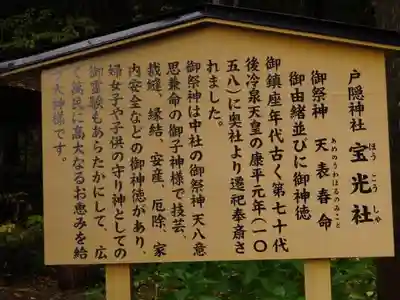 戸隠神社 宝光社
ほうこうしゃ
御由緒並びに御神徳
御祭神 天表春命
あめのうわはるのみこと
御鎮座年代古く第七十代
後冷泉天皇の康平元年(一〇
五八)に奥社より遷祀奉斎さ
れました。
御祭神は中社の御祭神 天八意
思兼命の御子神様で技芸、
裁縫、縁結、安産、厄除、家
内安全などの御神徳があり、
婦女子や子供の守り神としての
御霊験もあらたかにして、広
く萬民に高大なるお恵みを給
う大神様です。